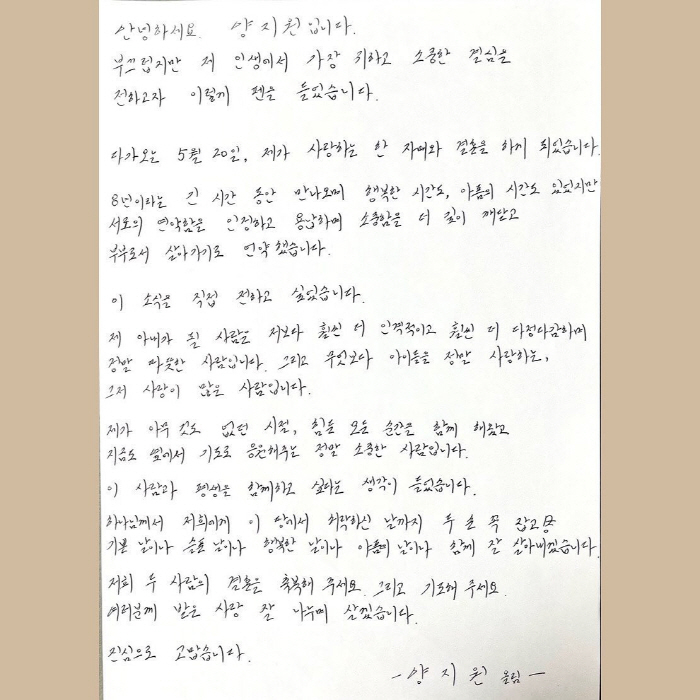 안녕하세요. 양지원입니다.
부끄럽지만 제 인생에서 가장 귀하고 소중한 결심을
전하고자 이렇게 펜을 들었습니다.
다가오는 5월 20일, 제가 사랑하는 한 자매와 결혼을 하게 되었습니다.
8년이라는 긴 시간 동안 만나오며 행복한 시간도, 아픔의 시간도 있었지만
서로의 연약함을 인정하고 용납하며 소중함을 더 깊이 깨닫고
부부로서 살아가기로 언약했습니다.
이 소식을 직접 전하고 싶었습니다.
제 아내가 될 사람은 저보다 훨씬 더 인격적이고 훨씬 더 다정다감하며
정말 따뜻한 사람입니다. 그리고 무엇보다 아이들을 정말 사랑하는,
그저 사랑이 많은 사람입니다.
제가 아무 것도 없던 시절, 힘든 모든 순간을 함께 해왔고
지금도 옆에서 기도로 응원해주는 정말 소중한 사람입니다.
이 사람과 평생을 함께하고 싶다는 생각이 들었습니다.
하나님께서 저희에게 이 땅에서 허락하신 날까지 두 손 꼭 잡고
기쁜 날이나 슬픈 날이나 행복한 날이나 아픔의 날이나 함께 잘 살아내겠습니다.
저희 두 사람의 결혼을 축복해 주세요. 그리고 기도해 주세요.
여러분께 받은 사랑 잘 나누며 살겠습니다.
진심으로 고맙습니다.
- 양지원 올림 -